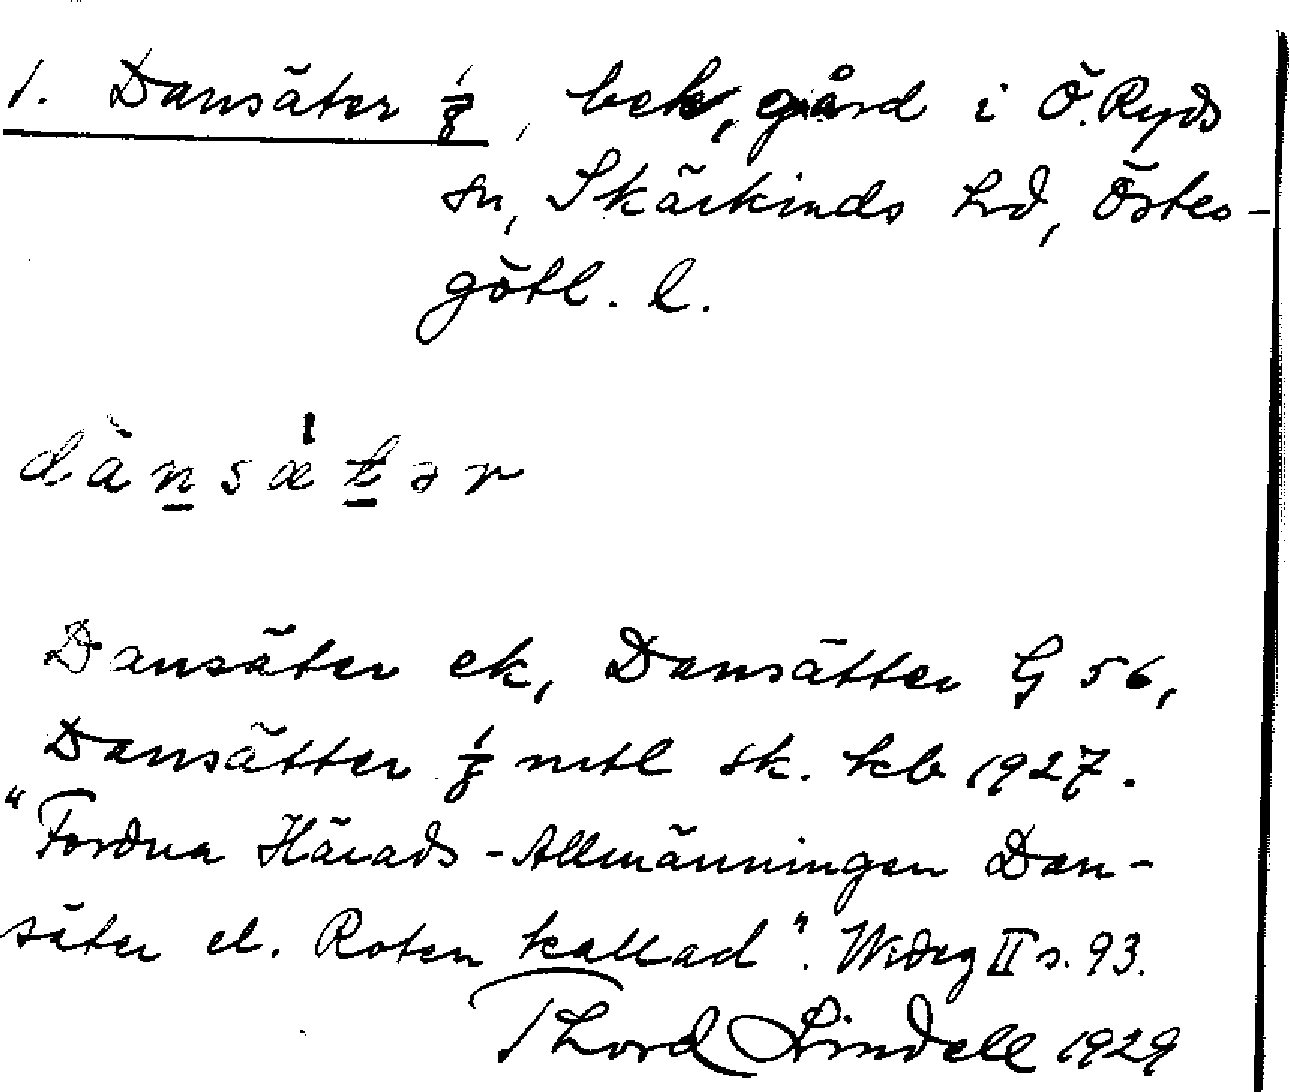 1. Dansäter 1/8, bek, gård i Ö. Ryds
sn, Skärkinds hd, Öster-
götl. l.
dànsæ̍tər
Dansäter ek, Dansätter G 56,
Dansätter 1/8 mtl sk. kb 1927.
"Fordna Härads-Allmänningen Dan-
säter el. Roten kallad". Wideg II s. 93.
Thord Lindell 1929